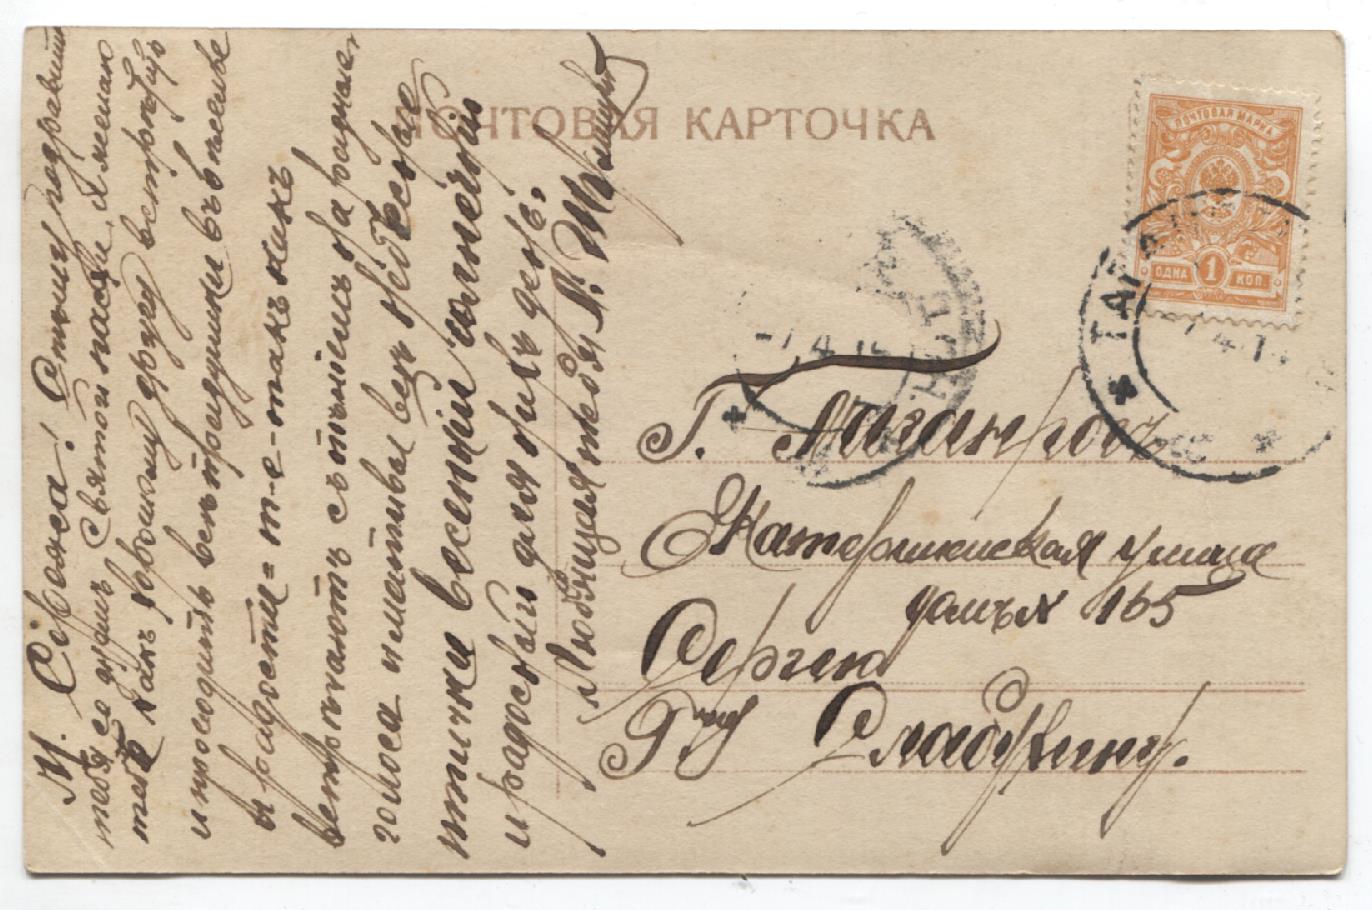 ПОЧТОВАЯ КАРТОЧКА
ПОЧТОВАЯ МАРКА
ОДНА 1 КОП.
М. Сѣрожа! Спѣшу поздравить
тебя со днемъ святой пасхи, я желаю
тебѣ какъ хорошему другу встрѣтить
и проводить всѣ праздники въ весельѣ
и радости = т-е- такъ какъ
встрѣчаютъ съ пѣніемъ на разные
голоса и мотивы всѣ небесные
птички весенній солнечный
и радосный для нихъ день.
Любящая тебя Л.
Г. Таганрогъ
Екатерининская улица
домъ № 165
Сергею
Гну Сладкину.
-7.4.1
ТАГАН
7.4.1